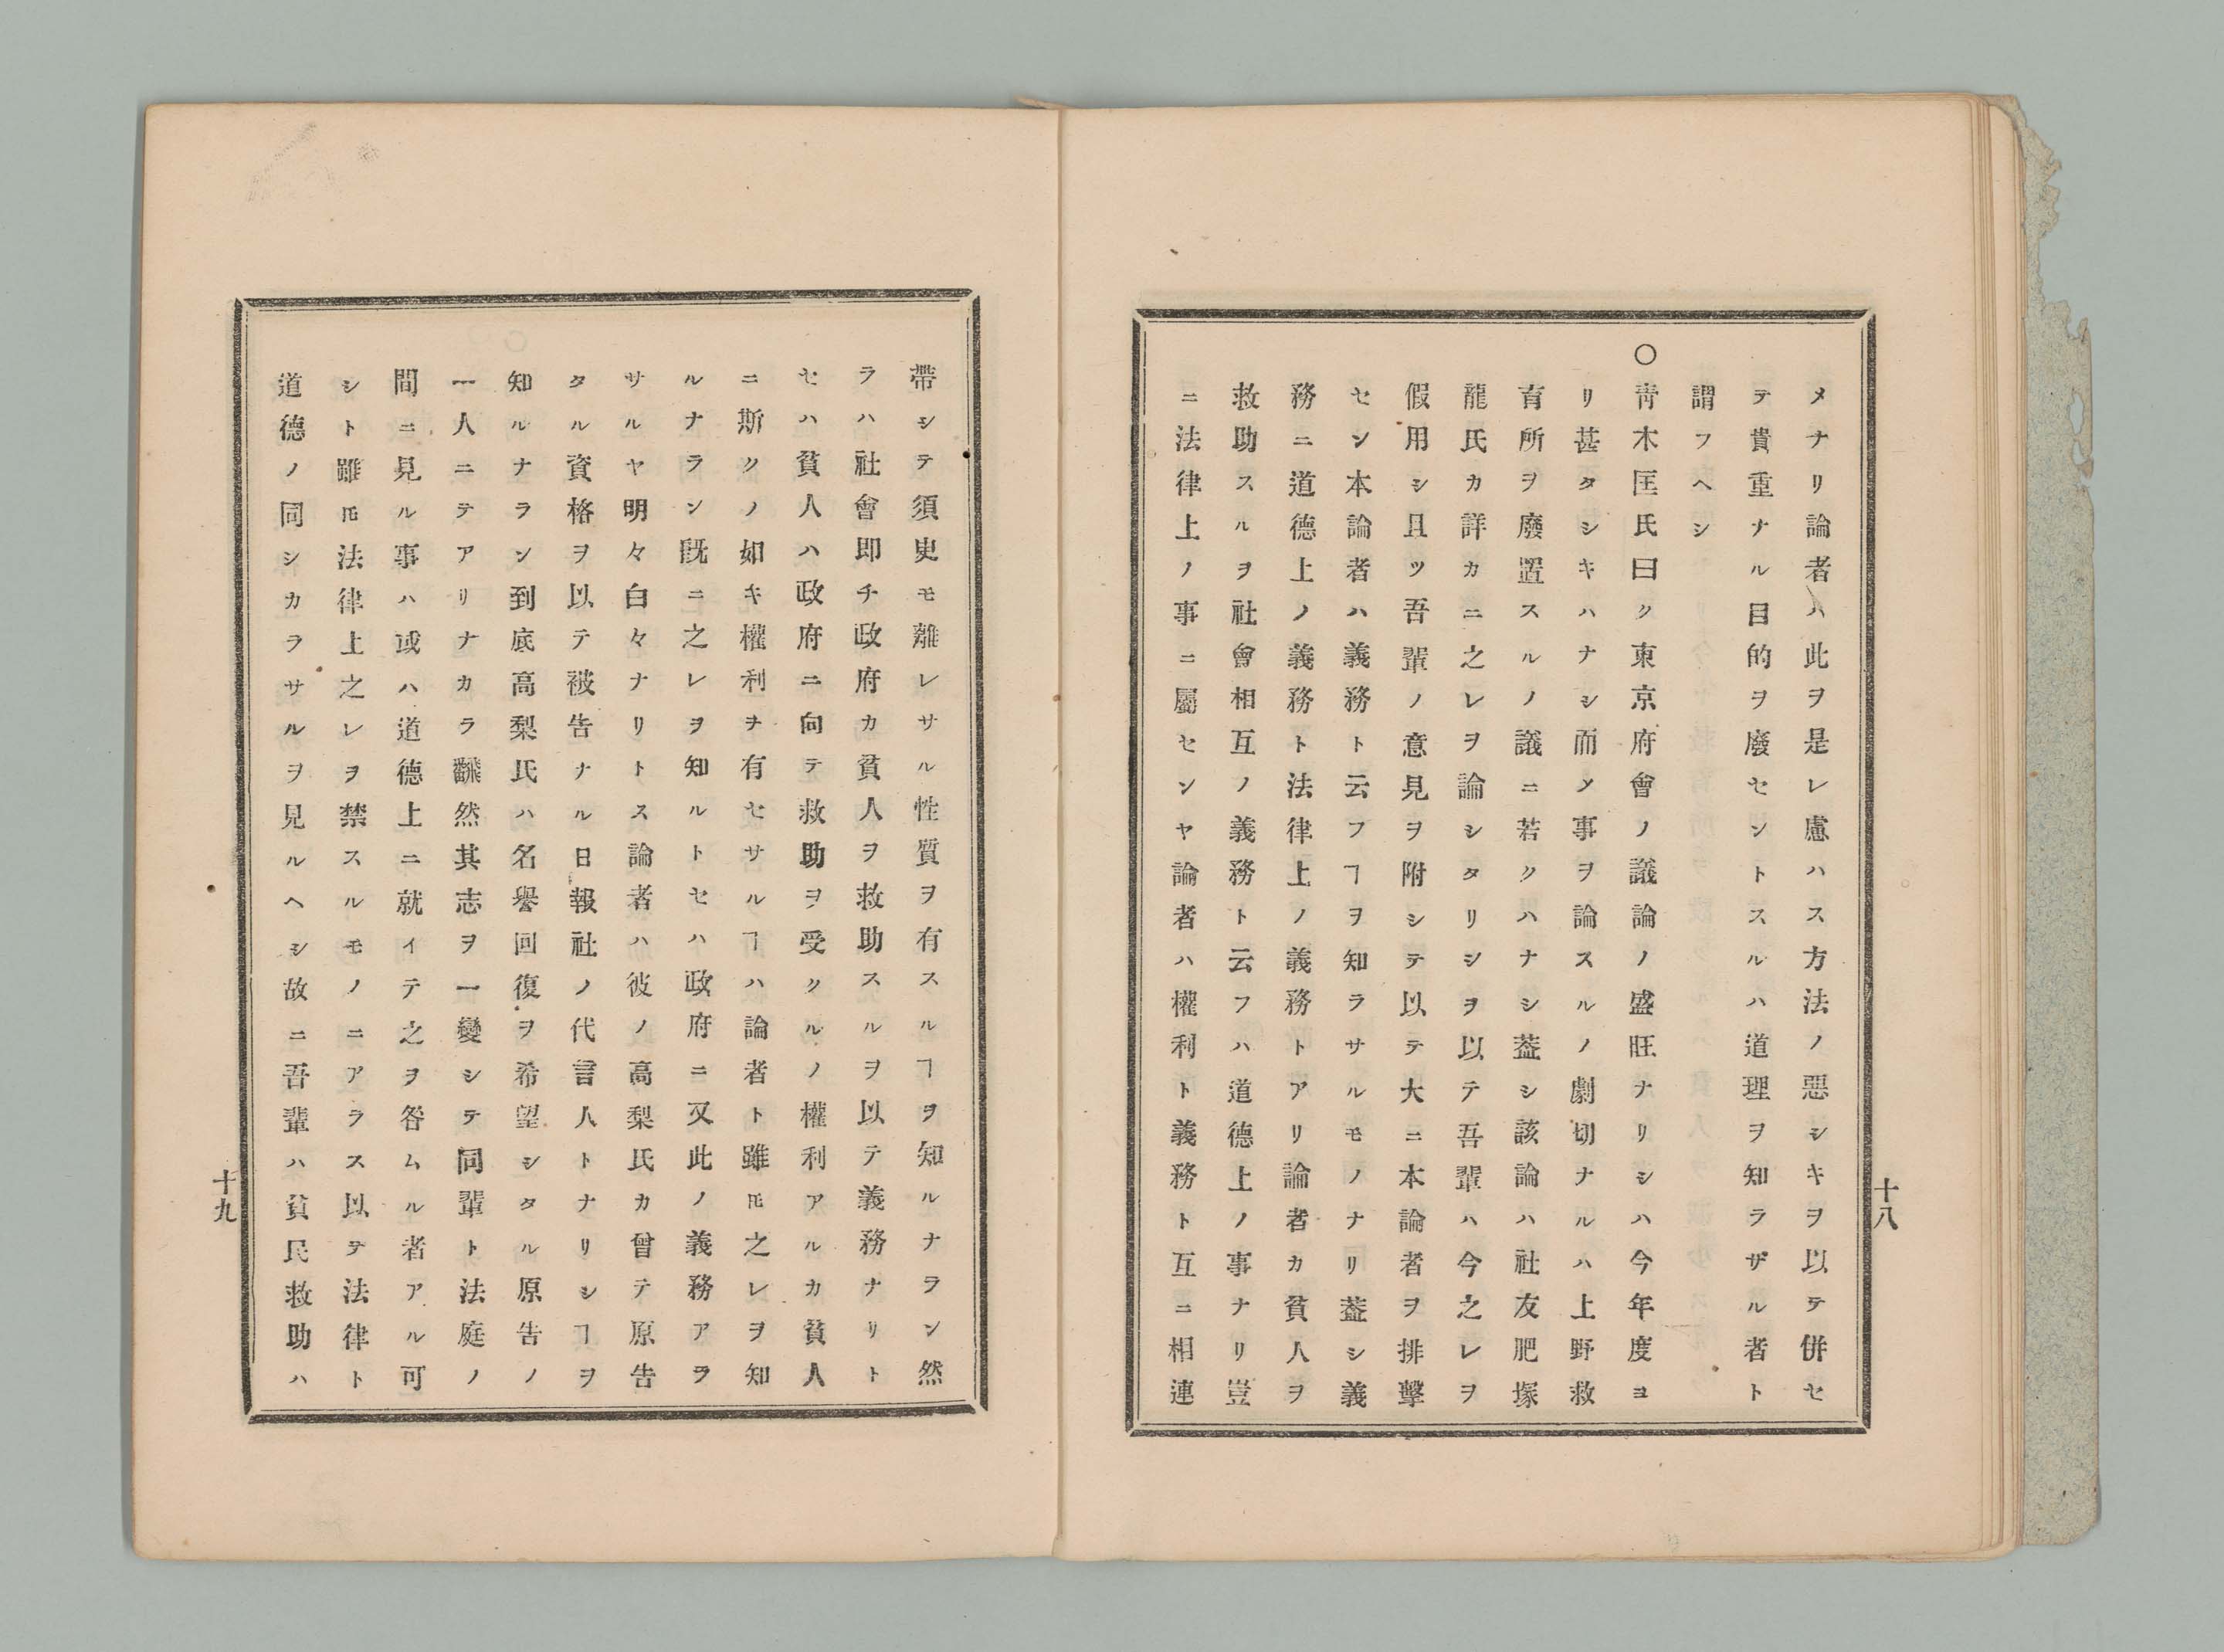 メナリ論者ハ此ヲ是レ慮ハス方法ノ惡シキヲ以テ併セ
テ貴重ナル目的ヲ廢セントスルハ道理ヲ知ラザル者ト
謂フヘシ
○靑木匡氏曰ク東京府會ノ議論ノ盛旺ナリシハ今年度ヨ
リ甚タシキハナシ而メ事ヲ論スルノ劇切ナルハ上野救
育所ヲ廢置スルノ議ニ若クハナシ蓋シ該論ハ社友肥塚
龍氏カ詳カニ之レヲ論シタリシヲ以テ吾輩ハ今之レヲ
假用シ且ツ吾輩ノ意見ヲ附シテ以テ大ニ本論者ヲ排擊
セン本論者ハ義務ト云フヿヲ知ラサルモノナリ蓋シ義
務ニ道德上ノ義務ト法律上ノ義務トアリ論者カ貧人ヲ
救助スルヲ社會相互ノ義務ト云フハ道德上ノ事ナリ豈
ニ法律上ノ事ニ屬センヤ論者ハ權利ト義務ト互ニ相連
十八
帶シテ須臾モ離レサル性質ヲ有スルヿヲ知ルナラン然
ラハ社會即チ政府カ貧人ヲ救助スルヲ以テ義務ナリト
セハ貧人ハ政府ニ向テ救助ヲ受クルノ權利アルカ貧人
ニ斯クノ如キ權利ヲ有セサルヿハ論者ト雖𪜈之レヲ知
ルナラン既ニ之レヲ知ルトセハ政府ニ又此ノ義務アラ
サルヤ明々白々ナリトス論者ハ彼ノ高梨氏カ曾テ原告
タル資格ヲ以テ被告ナル日報社ノ代言人トナリシヿヲ
知ルナラン到底高梨氏ハ名譽回復ヲ希望シタル原告ノ
一人ニテアリナカラ飜然其志ヲ一變シテ同輩ト法庭ノ
間ニ見ル事ハ或ハ道德上ニ就イテ之ヲ咎ムル者アル可
シト雖𪜈法律上之レヲ禁スルモノニアラス以テ法律ト
道德ノ同シカラサルヲ見ルヘシ故ニ吾輩ハ貧民救助ハ
十九